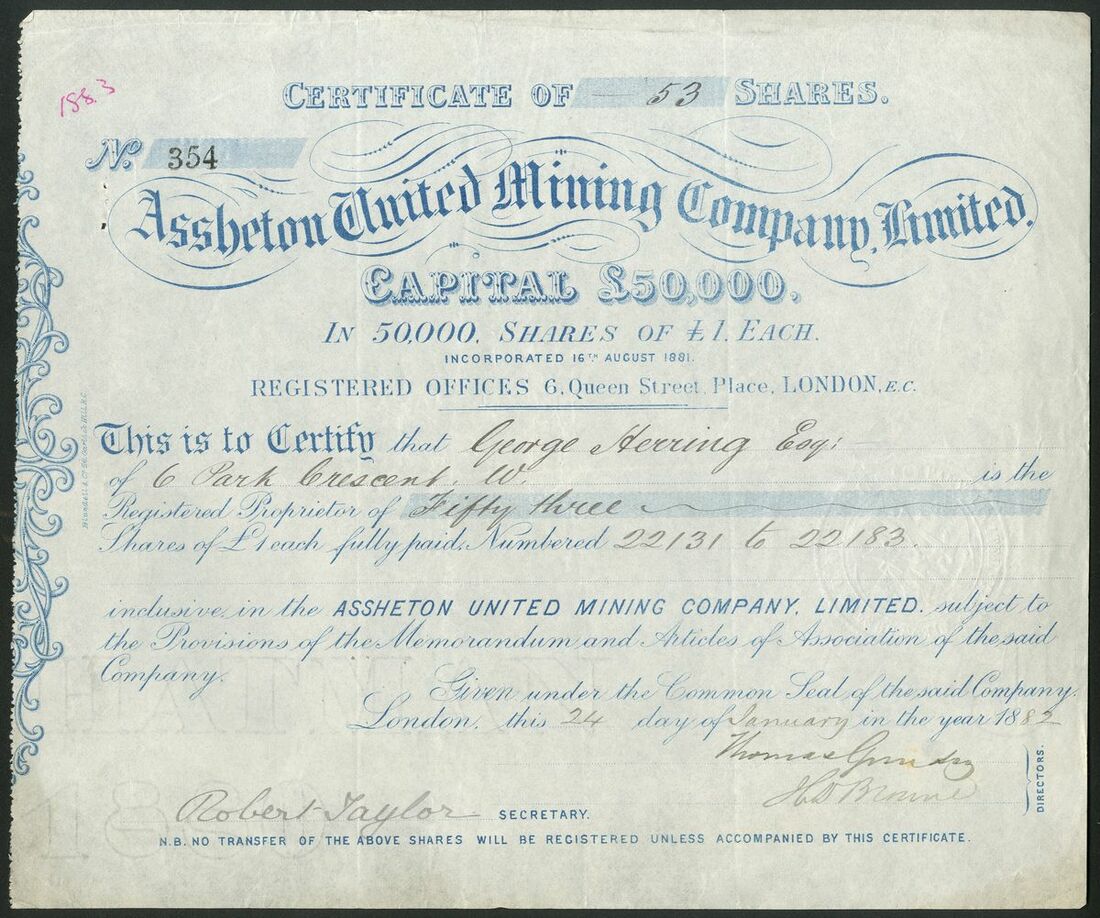 188.3
CERTIFICATE OF 53 SHARES.
No. 354
Assheton United Mining Company, Limited.
CAPITAL £50,000.
IN 50,000. SHARES OF £1. EACH.
INCORPORATED 16TH AUGUST 1881.
REGISTERED OFFICES 6, Queen Street, Place, LONDON, E.C.
This is to Certify that George Herring Esq:
of 6 Park Crescent. W. is the
Registered Proprietor of Fifty three
Shares of £1 each fully paid, Numbered 22131 to 22183.
inclusive in the ASSHETON UNITED MINING COMPANY, LIMITED. subject to
the Provisions of the Memorandum and Articles of Association of the said
Company.
Given under the Common Seal of the said Company,
London, this 24 day of January in the year 1882
Thomas
H D Browne
DIRECTORS.
Robert Taylor SECRETARY.
N.B. NO TRANSFER OF THE ABOVE SHARES WILL BE REGISTERED UNLESS ACCOMPANIED BY THIS CERTIFICATE.